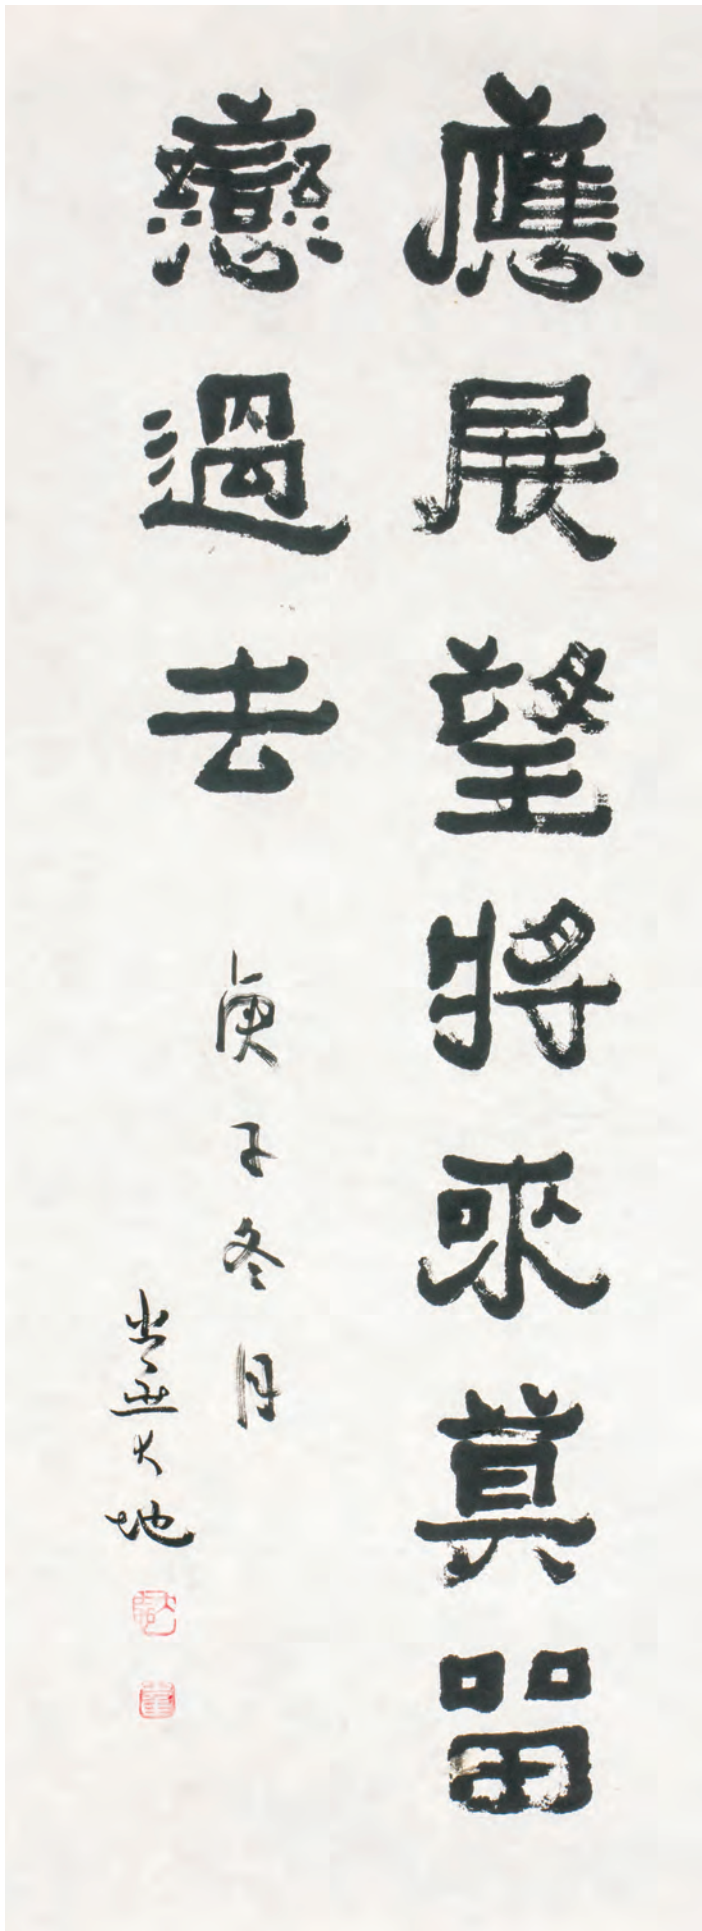 應展望將來莫留
戀過去
庚子冬月
大地